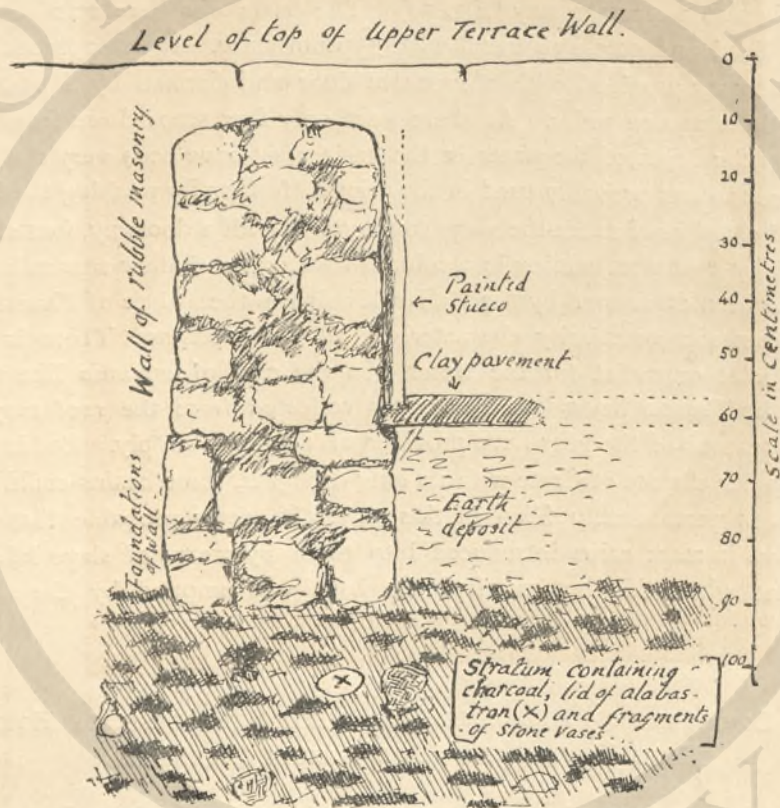 Level of top of Upper Terrace Wall.
Wall of rubble masonry.
Foundations
of wall
Painted
Stucco
Clay pavement
Earth
deposit
Stratum containing
charcoal, lid of alabas-
tron (X) and fragments
of stone vases.
X
0
10
20
30
40
50
60
70
80
90
100
Scale in Centimetres